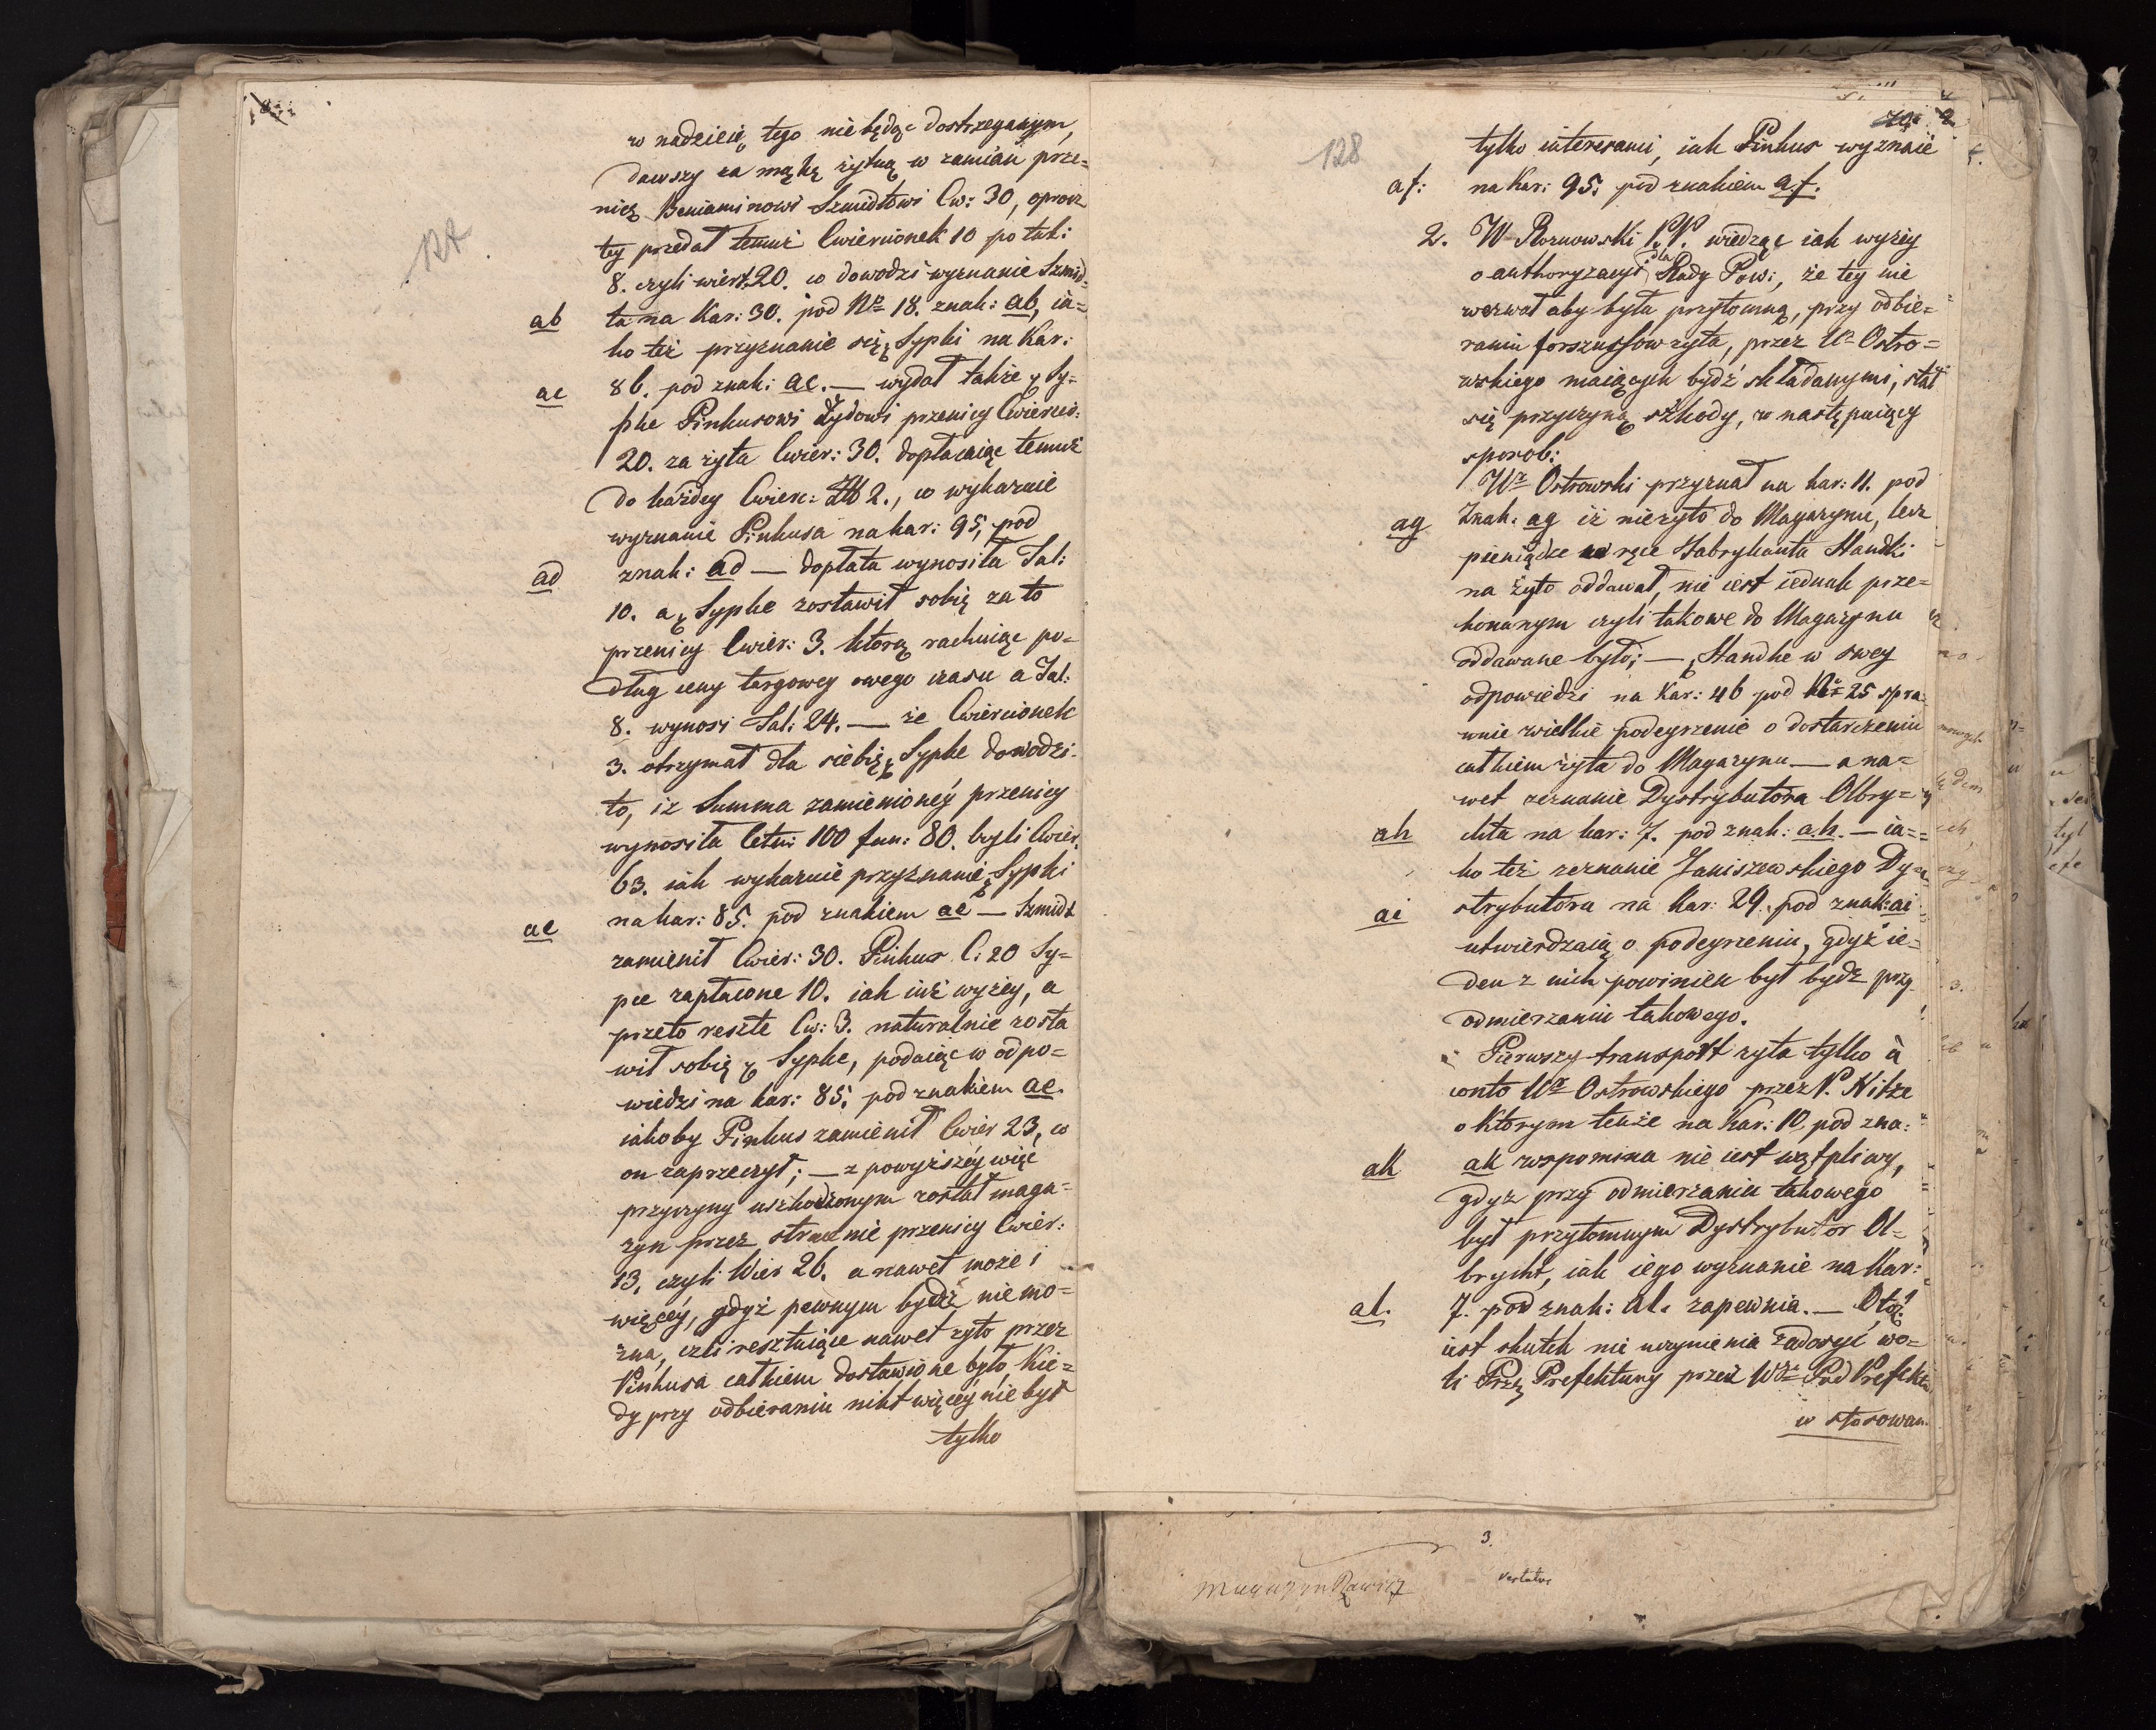 w nadzieię tego nie będąc dostrzeganym,
dawszy za mąkę żytną w zamian prze=
nicę Beniaminowi Szmidtowi Cw: 30, oprocz
tey przedał temuż Cwiercionek 10 po tal:
8. czyli wiert 20. co dowodzi wyznanie Szmid=
ab ta na Kar: 30. pod Nr 18. znak: ab, ia=
ko też przyznanie się Sypki na Kar:
ac 86. pod znak: ac. — wydał także Sy=
pke Pinkusowi Żydowi przenicy Cwiercio:
20. za żyta Cwier: 30. dopłacaiąc temuż
do każdey Cwierc: 2., co wykazuie
wyznanie Pinkusa na kar: 95, pod
ad znak: ad — dopłata wynosiła Tal:
10. a Sypke zostawił sobie za to
przenicy Cwier: 3. ktorą rachuiąc po=
dług ceny targowey owego czasu a Tal:
8. wynosi Tal: 24. — że Cwiercionek
3. otrzymał dla siebie Sypke dowodzi
to, iż Summa zamienioney przenicy
wynosiła Cetn: 100 fun: 80. czyli Cwier.
63. iak wykazuie przyznanie Sypki
ae na kar: 85. pod znakiem ae — Szmidt
zamienił Cwier: 30. Pinkus C: 20 Sy=
pce zapłacone 10. iak iuż wyżey, a
przeto reszte Cw: 3. naturalnie zosta
wił sobie Sypke, podaiąc w odpo=
wiedzi na kar: 85. pod znakiem ae.
iakoby Pinkus zamienił Cwier 23, co
on zaprzeczył; — z powyższey więc
przyczyny uszkodzonym został maga=
zyn przez stracenie przenicy Cwier:
13, czyli Wier 26. a nawet może i
więcey, gdyż pewnym bydź nie mo=
żna, czli resztuiące nawet żyto przez
Pinkusa całkiem dostawione było, Kie=
dy przy odbieraniu nikt więcey nie był
tylko
128
tylko interesami, iak Pinkus wyznaie
af: na Kar: 95. pod znakiem af.
2. W Rornowski PP. wiedząc iak wyżey
o authoryzacyi dla Rady Pow:, że tey nie
wezwał aby była przytomną, przy odbie=
raniu forszussow żyta, przez Wo Ostro=
wskiego maiących bydź składanymi, stał
się przyczyną szkody, w następuiący
sposob:
Wr Ostrowski przyznał na kar: 11. pod
ag Znak. ag iż nie żyto do Magazynu, lecz
pieniądze w ręce Fabrykanta Handki
na żyto oddawał, nie iest iednak prze=
konanym czyli takowe do Magazynu
oddawane było; — Handke w swey
odpowiedzi na Kar: 46 pod Nr 25 spra=
wuie wielkie podeyrzenie o dostarczeniu
całkiem żyta do Magazynu — a na=
wet zeznanie Dystrybutora Olbry=
ah chta na kar: 7. pod znak: a.h. — ia=
ko też zeznanie Janiszewskiego Dy=
ai strybutora na Kar: 29. pod znak: ai
utwierdzaią o podeyrzeniu, gdyż ie=
den z nich powinien był bydź przy
odmierzaniu takowego.
Pierwszy transport żyta tylko à
conto Wo Ostrowskiego przez P. Nitze
o Którym tenże na Kar: 10. pod zna:
ak ak wspomina nie iest wątpliwy,
gdyż przy odmierzaniu takowego
był przytomnym Dystrybutor Ol=
brycht, iak iego wyznanie na Kar:
al. 7. pod znak: al. zapewnia. — Otoż
iest skutek nie uczynienia zadosyć wo=
li Prz Prefektury przez Wo PodPrefekta
w stosowan.
3.
Magazyn Rawicz